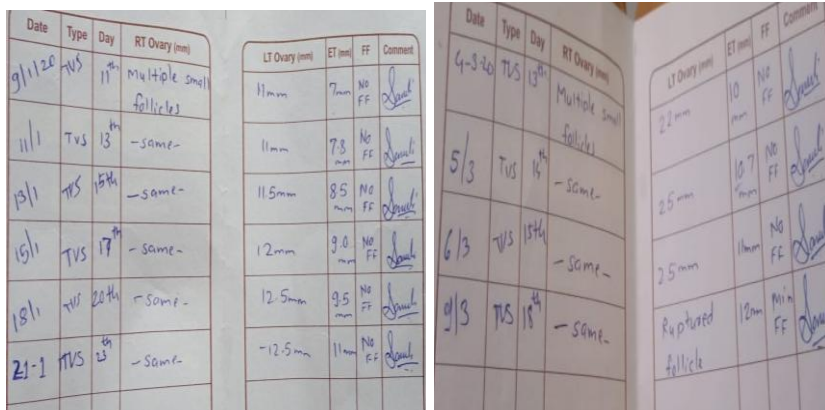 Date Type Day RT Ovary (mm) LT Ovary (mm) ET (mm) FF Comment
9/1/20 TVS 11th Multiple small follicles 11mm 7mm No FF
11/1 TVS 13th -same- 11mm 7.8 mm No FF
13/1 TVS 15th -same- 11.5mm 8.5 mm No FF
15/1 TVS 17th -same- 12mm 9.0 mm No FF
18/1 TVS 20th -same- 12.5mm 9.5 mm No FF
21-1 TVS 23th -same- -12.5mm 11mm No FF
Date Type Day RT Ovary (mm) LT Ovary (mm) ET (mm) FF Comment
4-3-20 TVS 13th Multiple small follicles 22mm 10 mm No FF
5/3 TVS 14th -same- 25mm 10.7 mm No FF
6/3 TVS 15th -same- 25mm 11mm No FF
9/3 TVS 18th -same- Ruptured follicle 12mm Min FF